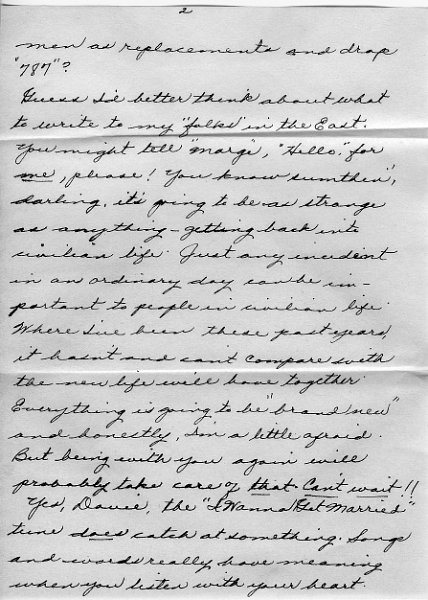 2
men as replacements and drop
"787"?
Guess I'd better think about what
to write to my "folks" in the East.
You might tell "Marge", "Hello" for
me, please! You know sumthin',
darling, it's going to be as strange
as anything - getting back into
civilian life. Just any incident
in an ordinary day can be im-
portant to people in civilian life.
Where I've been these past years,
it hasn't and can't compare with
the new life we'll have together.
Everything is going to be "brand new"
and honestly, I'm a little afraid.
But being with you again will
probably take care of that. Can't wait!!
Yes, Davie, the "I Wanna Get Married"
tune does catch at something. Songs
and words really have meaning
when you listen with your heart.